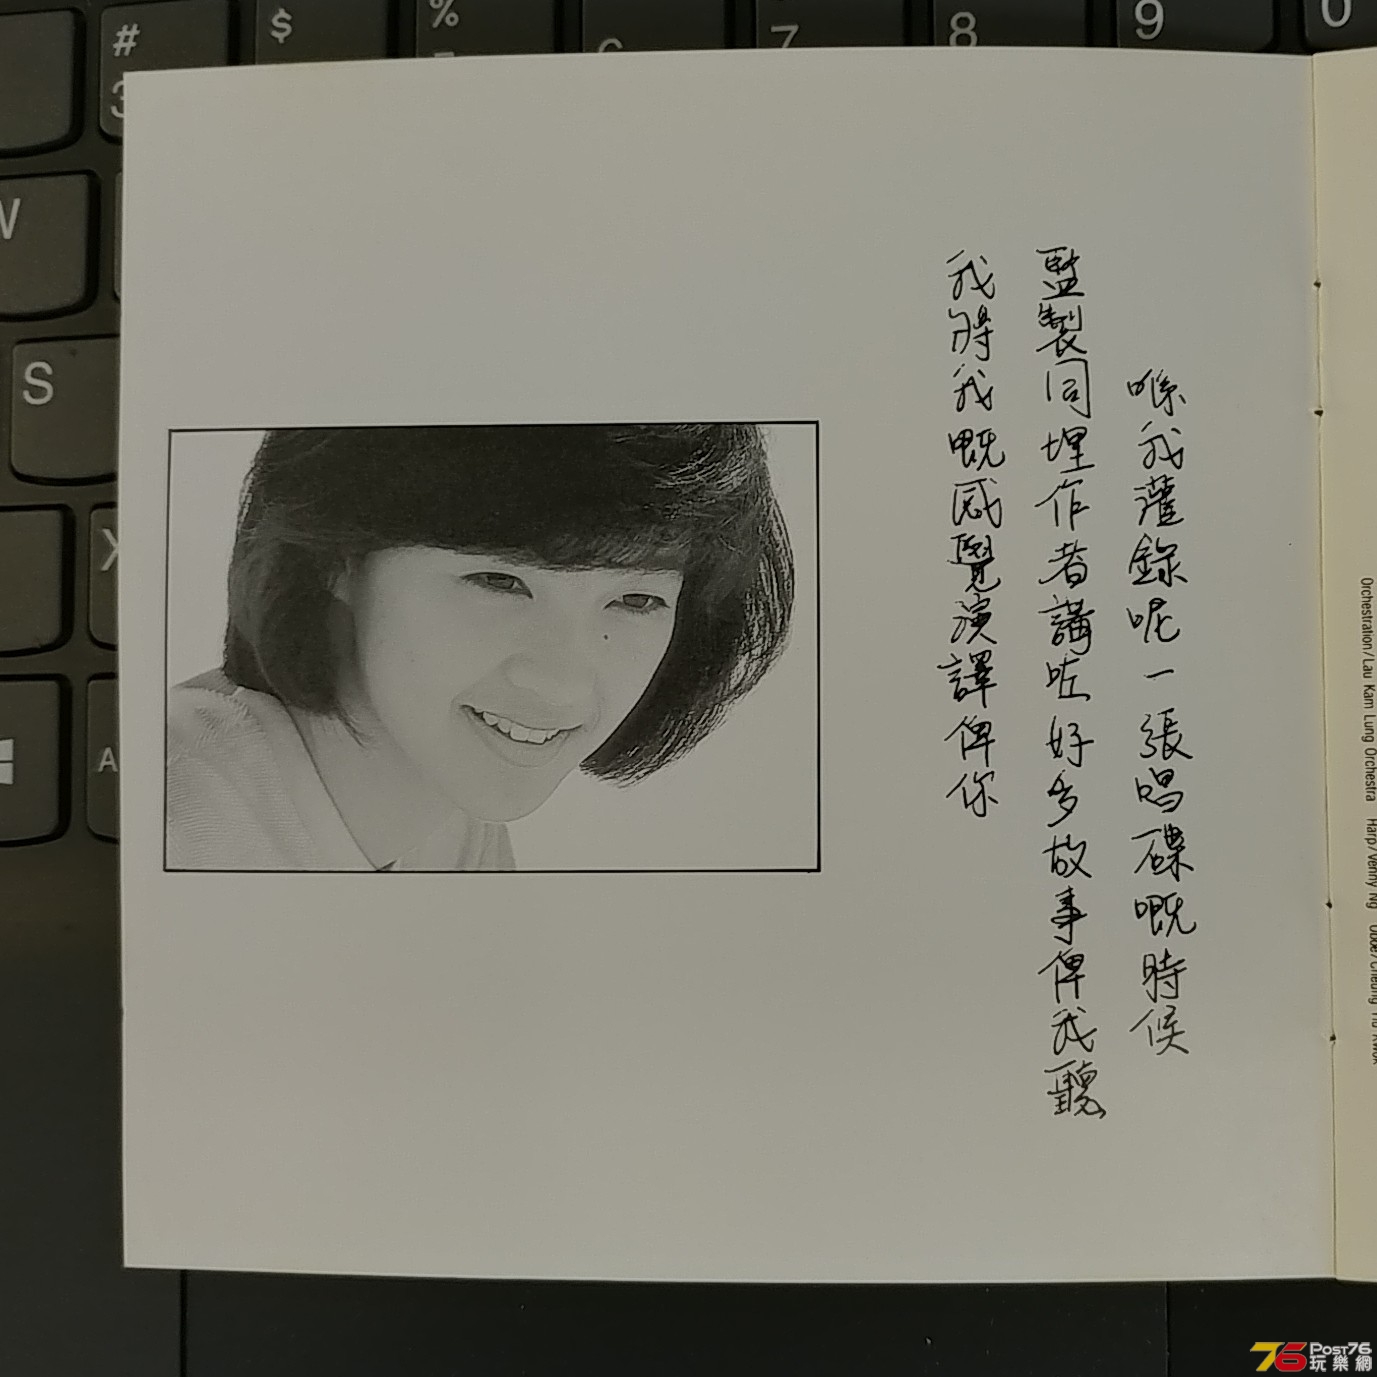 喺我灌錄呢一張唱碟嘅時候
監製同埋作者講咗好多故事俾我聽
我將我嘅感覺演譯俾你
Orchestration/Lau Kam Lung Orchestra Harp/Venny Ng Oboe/Cheung
#
3
$
%
7
8
9
0
W
S
X
A
76 Post76
玩樂網